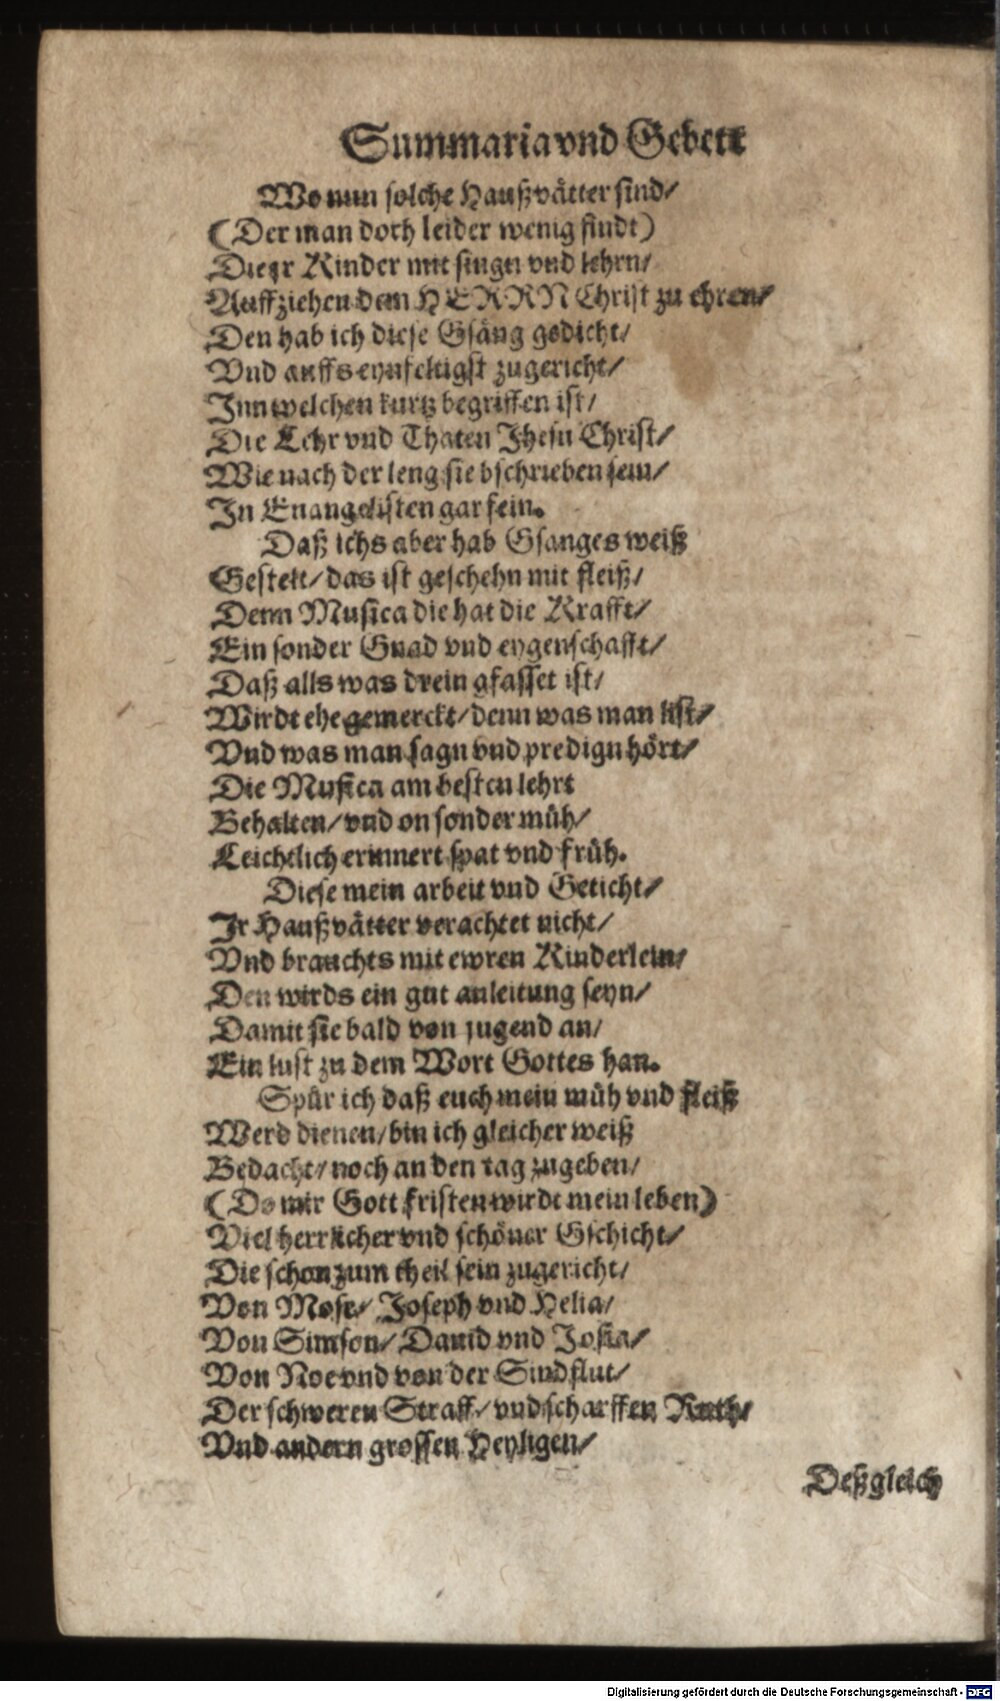 Summaria vnd Gebett
Wo nun solche Haußvätter sind/
(Der man doch leider wenig findt)
Die jr Kinder mit singn vnd lehrn/
Auffziehen dem HERRN Christ zu ehren/
Den hab ich diese Gsäng gedicht/
Vnd auffs eynfeltigst zugericht/
Inn welchen kurtz begriffen ist/
Die Lehr vnd Thaten Jhesu Christ/
Wie nach der leng sie bschrieben sein/
In Euangelisten gar fein.
Daß ichs aber hab Gsanges weiß
Gestelt/ das ist geschehn mit fleiß/
Denn Musica die hat die Krafft/
Ein sonder Gnad vnd eygenschafft/
Daß alls was drein gfasset ist/
Wirdt ehe gemerckt/ denn was man list/
Vnd was man sagn vnd predign hört/
Die Musica am besten lehrt
Behalten/ vnd on sonder müh/
Leichtlich erinnert spat vnd früh.
Diese mein arbeit vnd Geticht/
Jr Haußvätter verachtet nicht/
Vnd brauchts mit ewren Kinderlein/
Den wirds ein gut anleitung seyn/
Damit sie bald von jugend an/
Ein lust zu dem Wort Gottes han.
Spür ich daß euch mein müh vnd fleiß
Werd dienen/ bin ich gleicher weiß
Bedacht/ noch an den tag zugeben/
(Do mir Gott fristen wirdt mein leben)
Viel herrlicher vnd schöner Gschicht/
Die schon zum theil sein zugericht/
Von Mose/ Joseph vnd Helia/
Von Simson/ Dauid vnd Josia/
Von Noe vnd von der Sindflut/
Der schweren Straff/ vnd scharffen Ruth/
Vnd andern grossen Heyligen/
Deßgleich
Digitalisierung gefördert durch die Deutsche Forschungsgemeinschaft - DFG